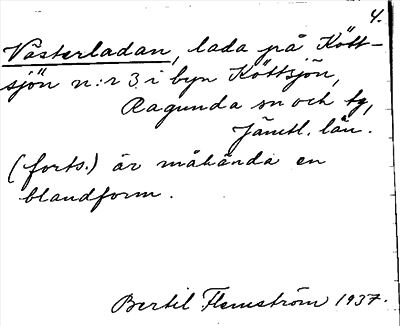 4.
Västerladan, lada på Kött-
sjön n:r 3 i byn Köttsjön,
Ragunda sn och tg,
Jämtl. län.
(forts.) är måhända en
blandform.
Bertil Flemström 1937.